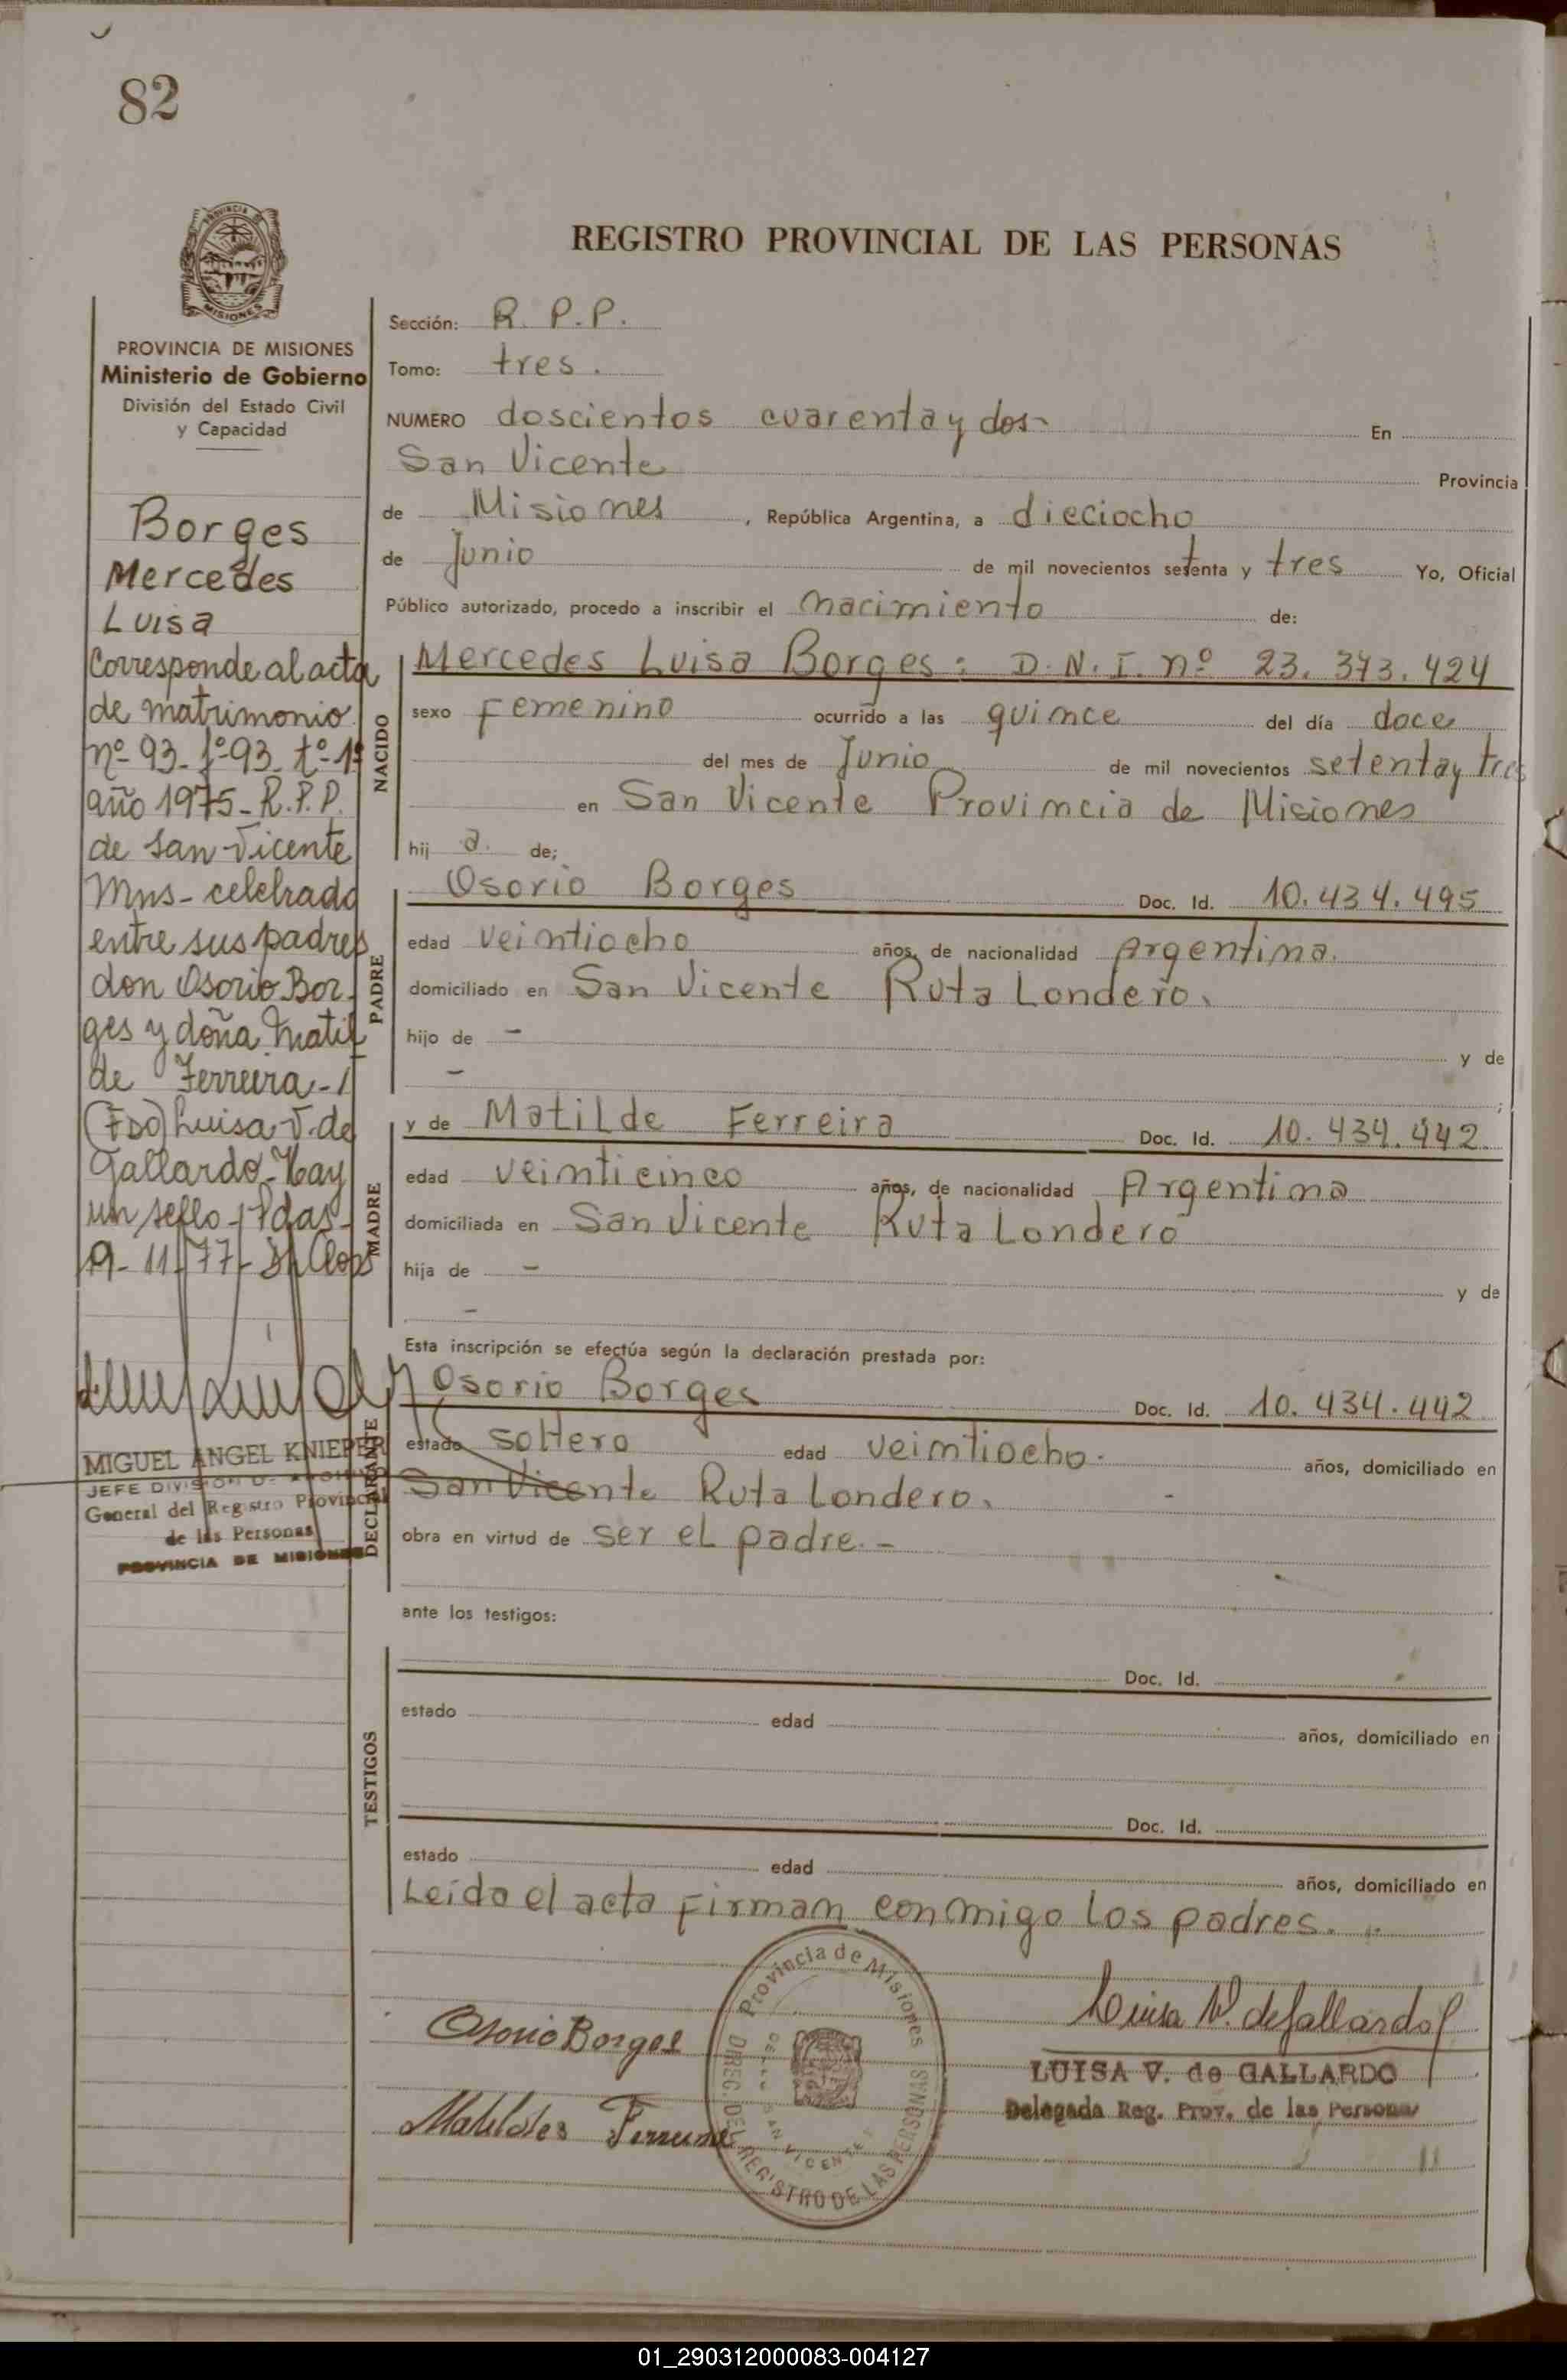 82
PROVINCIA DE
MISIONES
REGISTRO PROVINCIAL DE LAS PERSONAS
PROVINCIA DE MISIONES
Ministerio de Gobierno
División del Estado Civil
y Capacidad
Borges
Mercedes
Luisa
Corresponde al acta
de matrimonio
nº 93 - fº 93 - tº - 1º
año 1975 - R.P.P.
de San Vicente
Mns - celebrado
entre sus padres
don Osorio Bor-
ges y doña Matil
de Ferreira -
(FDO) Luisa V. de
Gallardo - Hay
un sello - Pdas -
9 - 11 - 77 -
MIGUEL ANGEL KNIEPER
JEFE DIVISION
General del Registro Provincial
de las Personas
PROVINCIA DE MISIONES
Sección: R. P. P.
Tomo: tres.
NUMERO doscientos cuarenta y dos - En
San Vicente Provincia
de Misiones, República Argentina, a dieciocho
de Junio de mil novecientos setenta y tres Yo, Oficial
Público autorizado, procedo a inscribir el nacimiento de:
NACIDO
Mercedes Luisa Borges: D. N. I. nº 23. 373. 424
sexo Femenino ocurrido a las quince del día doce
del mes de Junio de mil novecientos setenta y tres
en San Vicente Provincia de Misiones
hij a. de;
PADRE
Osorio Borges Doc. Id. 10. 434. 495
edad veintiocho años, de nacionalidad Argentina.
domiciliado en San Vicente Ruta Londero.
hijo de - y de
-
;
MADRE
y de Matilde Ferreira Doc. Id. 10. 434. 442.
edad veinticinco años, de nacionalidad Argentina
domiciliada en San Vicente Ruta Londero
hija de - y de
-
Esta inscripción se efectúa según la declaración prestada por:
DECLARANTE
Osorio Borges Doc. Id. 10. 434. 442
estado soltero edad veintiocho. años, domiciliado en
San Vicente Ruta Londero.
obra en virtud de ser el padre. -
ante los testigos:
TESTIGOS
Doc. Id.
estado edad años, domiciliado en
Doc. Id.
estado edad años, domiciliado en
Leída el acta firman conmigo los padres.
Osorio Borges
Matildes Ferreira
Provincia de Misiones
DIREC. DEL REGISTRO DE LAS PERSONAS
SAN VICENTE
Luisa V. de Gallardo
LUISA V. de GALLARDO
Delegada Reg. Prov. de las Personas
01_290312000083-004127